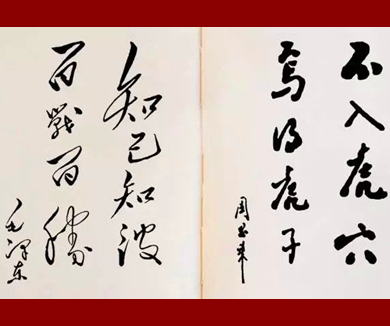 不入虎穴
焉得虎子
周恩来
知己知彼
百戰百勝
毛泽东